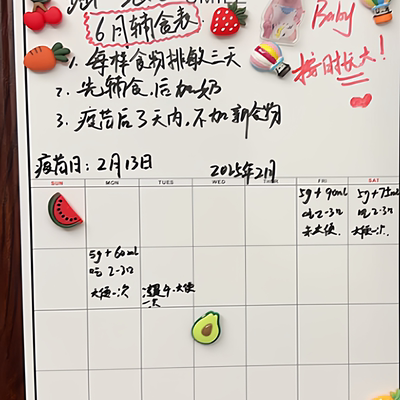 6月辅食表
Baby
按时长大！
1. 每样食物排敏三天
2. 先辅食，后加奶
3. 疫苗后3天内，不加新食物
疫苗日：2月13日
2025年2月
SUN MON TUES WED THUR FRI SAT
5g+90ml
吃2-3口
未大便.
5g+75ml
吃2-3口
大便一次.
5g+60ml
吃2-3口
大便一次
大便
一次